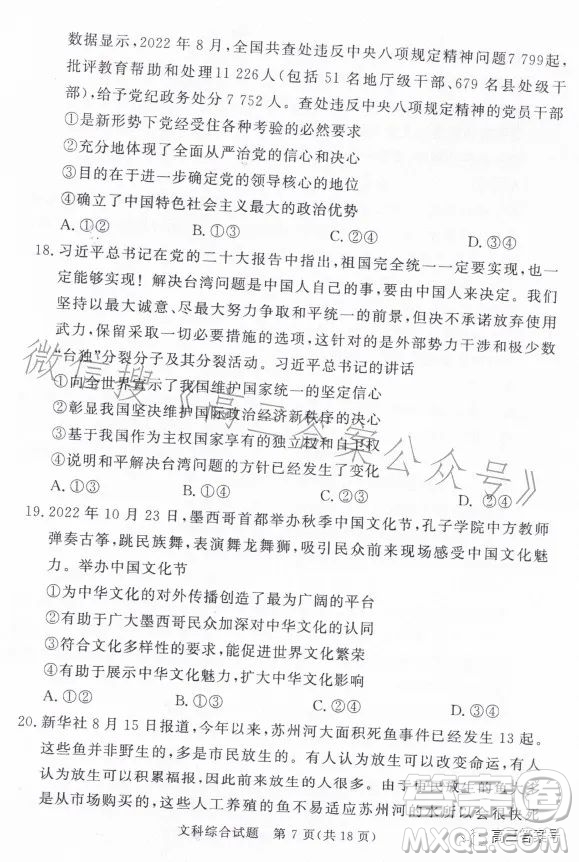 数据显示,2022 年 8 月,全国共查处违反中央八项规定精神问题7 799起,
批评教育帮助和处理11 226人(包括 51 名地厅级干部、679 名县处级干
部),给予党纪政务处分 7 752 人。查处违反中央八项规定精神的党员干部
①是新形势下党经受住各种考验的必然要求
②充分地体现了全面从严治党的信心和决心
③目的在于进一步确定党的领导核心的地位
④确立了中国特色社会主义最大的政治优势
A.①② B.①③ C.②④ D.③④
18. 习近平总书记在党的二十大报告中指出,祖国完全统一一定要实现,也一
定能够实现!解决台湾问题是中国人自己的事,要由中国人来决定。我们
坚持以最大诚意、尽最大努力争取和平统一的前景,但决不承诺放弃使用
武力,保留采取一切必要措施的选项,这针对的是外部势力干涉和极少数
“台独”分裂分子及其分裂活动。习近平总书记的讲话
①向全世界宣示了我国维护国家统一的坚定信心
②彰显我国坚决维护国际政治经济新秩序的决心
③基于我国作为主权国家享有的独立权和自卫权
④说明和平解决台湾问题的方针已经发生了变化
A.①② B.①③ C.③④ D.②④
19. 2022 年 10 月 23 日,墨西哥首都举办秋季中国文化节,孔子学院中方教师
弹奏古筝,跳民族舞,表演舞龙舞狮,吸引民众前来现场感受中国文化魅
力。举办中国文化节
①为中华文化的对外传播创造了最为广阔的平台
②有助于广大墨西哥民众加深对中华文化的认同
③符合文化多样性的要求,能促进世界文化繁荣
④有助于展示中华文化魅力,扩大中华文化影响
A.①② B.①③ C.②④ D.③④
20. 新华社 8 月 15 日报道,今年以来,苏州河大面积死鱼事件已经发生 13 起。
这些鱼并非野生的,多是市民放生的。有人认为放生可以改变命运,有人
认为放生可以积累福报,因此放生的人很多。由于市民放生的鱼大多
是从市场购买的,这些人工养殖的鱼不易适应苏州河的水所以会很快死
文科综合试题 第 7 页(共 18 页)
微信搜《高三答案公众号》
高三答案号
MXQE.COM